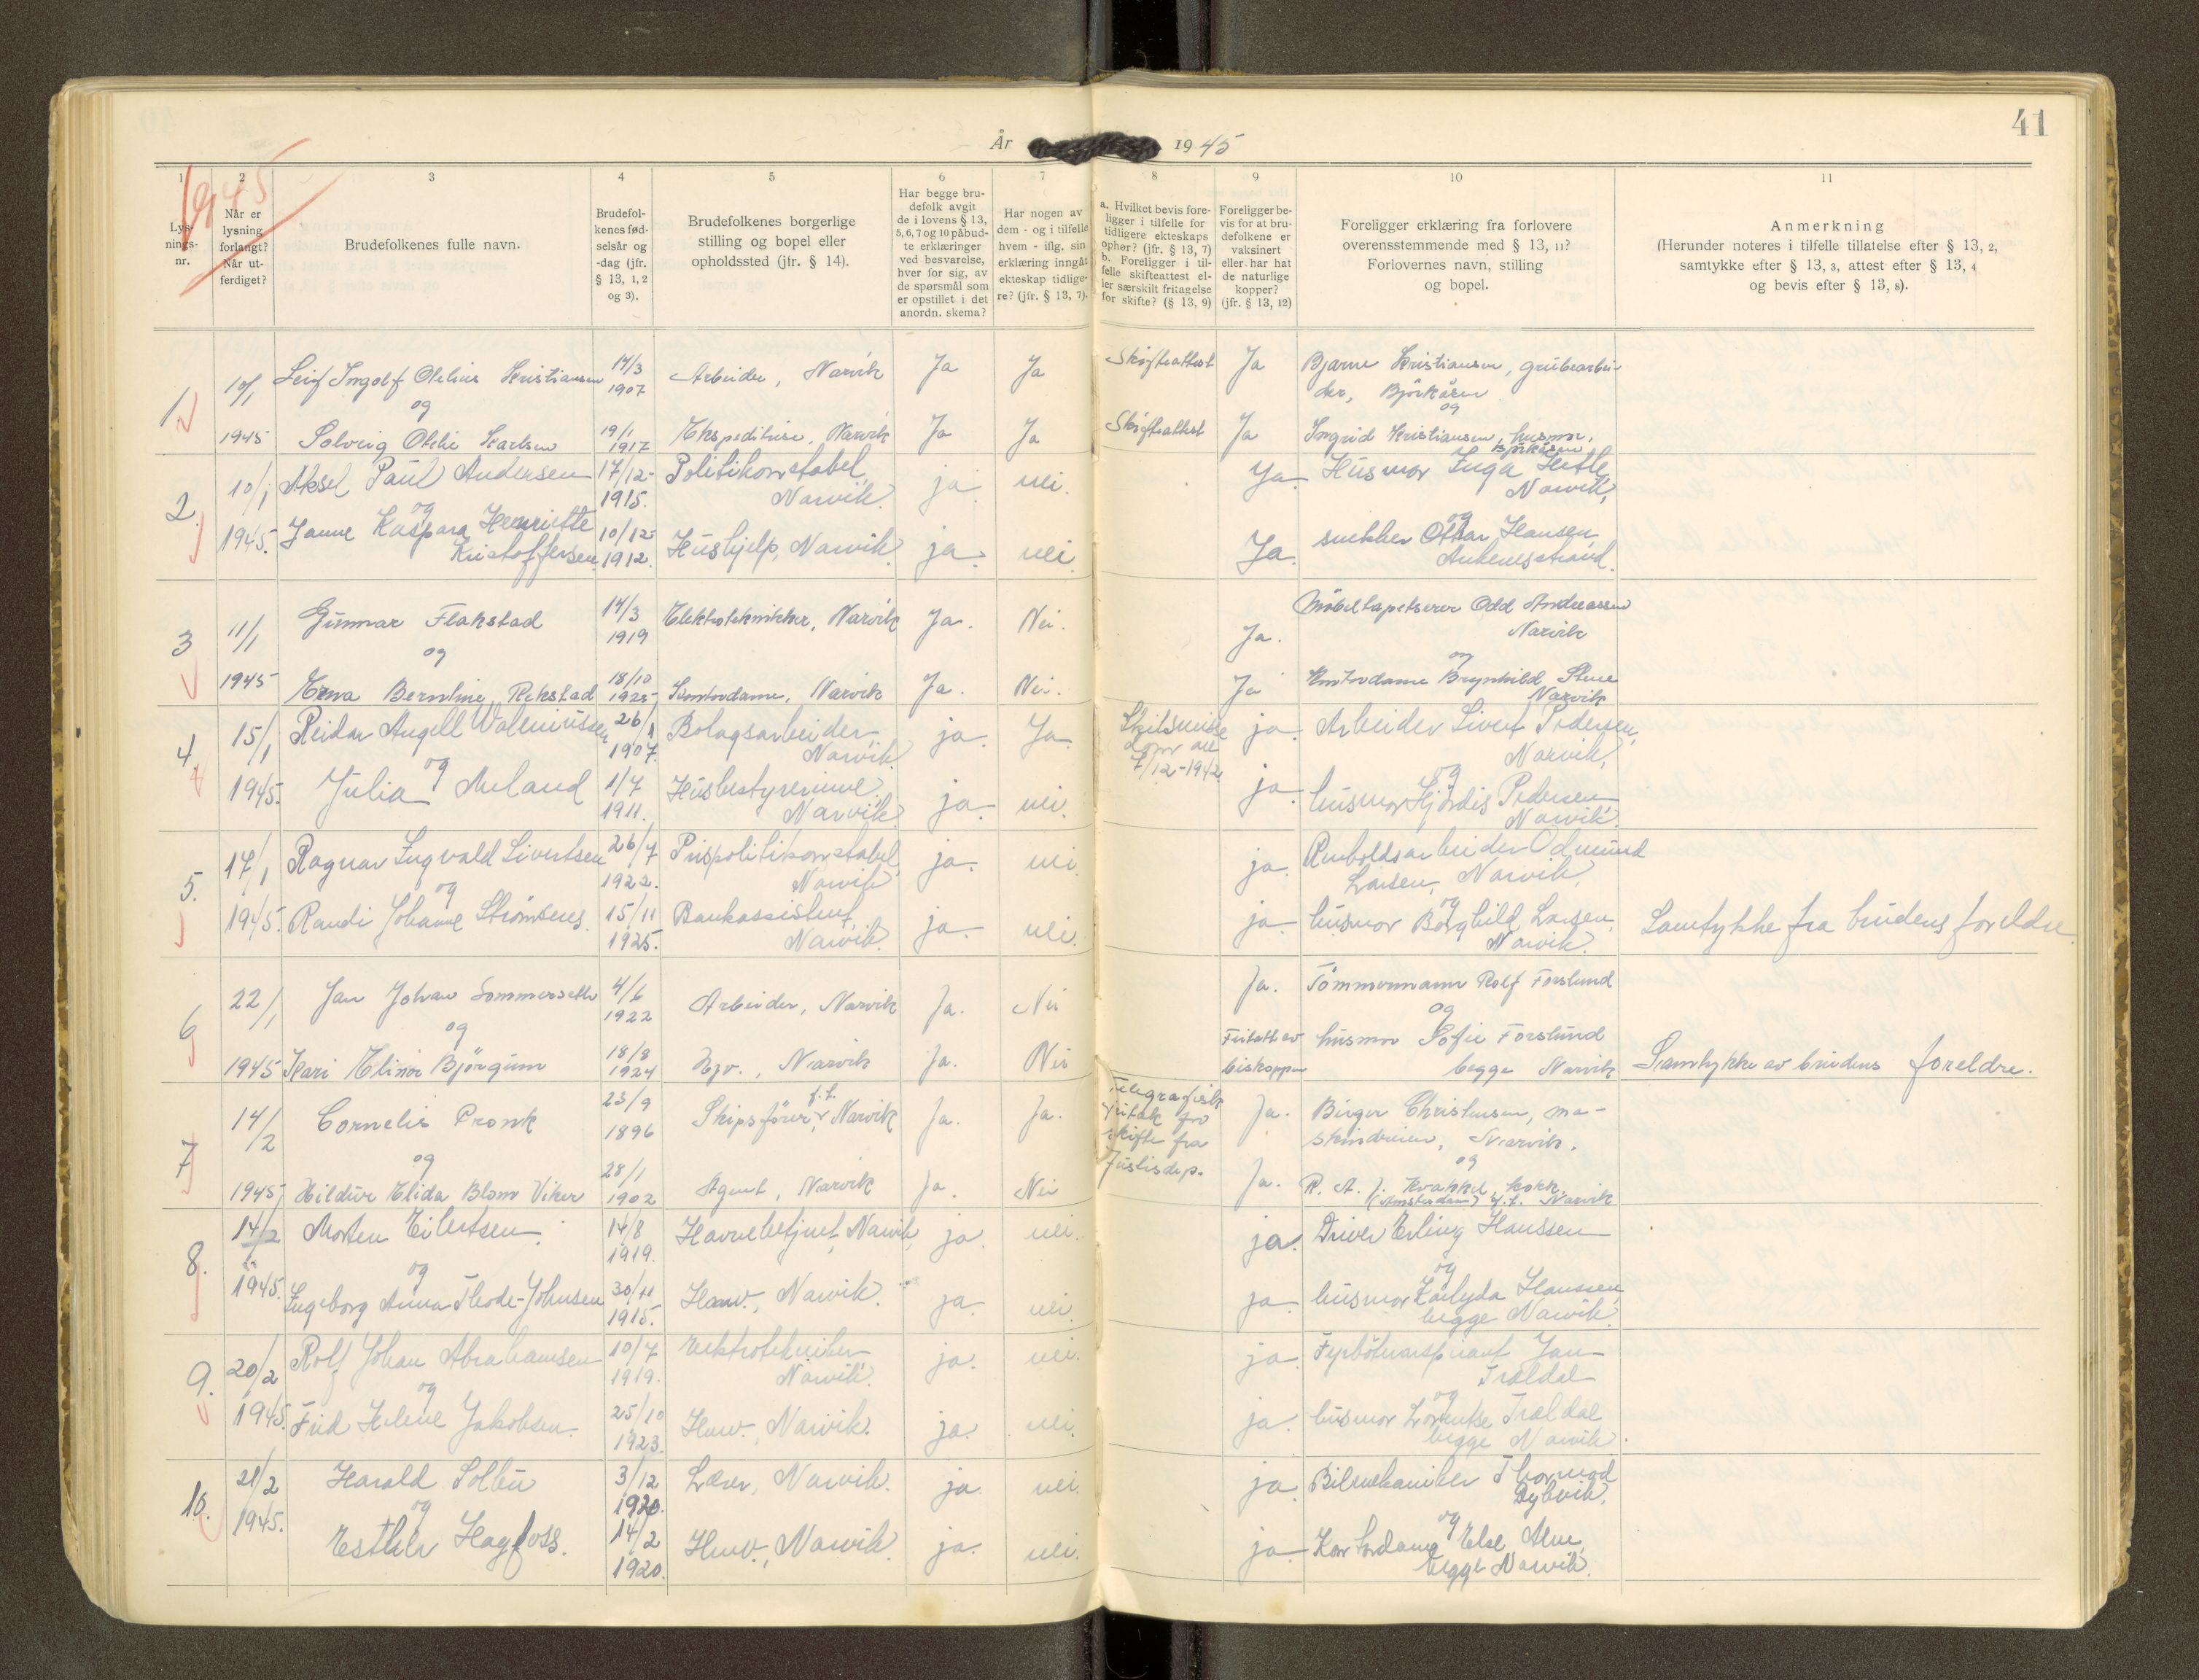 41
År 1945
1945
1 2 3 4 5 6 7 8 9 10 11
Lys-
nings-
nr.
Når er
lysning
forlangt?
Når ut-
ferdiget?
Brudefolkenes fulle navn.
Brudefol-
kenes fød-
selsår og
-dag (jfr.
§ 13, 1, 2
og 3).
Brudefolkenes borgerlige
stilling og bopel eller
opholdssted (jfr. § 14).
Har begge bru-
defolk avgit
de i lovens § 13,
5, 6, 7 og 10 påbud-
te erklæringer
ved besvarelse,
hver for sig, av
de spørsmål som
er opstillet i det
anordn. skema?
Har nogen av
dem - og i tilfelle
hvem - iflg. sin
erklæring inngåt
ekteskap tidlige-
re? (jfr. § 13, 7).
a. Hvilket bevis fore-
ligger i tilfelle for
tidligere ekteskaps
ophør? (jfr. § 13, 7)
b. Foreligger i til-
felle skifteattest el-
ler særskilt fritagelse
for skifte? (§ 13, 9)
Foreligger be-
vis for at bru-
defolkene er
vaksinert
eller har hat
de naturlige
kopper?
(jfr. § 13, 12)
Foreligger erklæring fra forlovere
overensstemmende med § 13, 11?
Forlovernes navn, stilling
og bopel.
Anmerkning
(Herunder noteres i tilfelle tillatelse efter § 13, 2,
samtykke efter § 13, 3, attest efter § 13, 4
og bevis efter § 13, 8).
1 10/1 Leif Ingolf Olelius Kristiansen 14/3 1907 Arbeider, Narvik Ja Ja Skifteattest Ja Bjarne Kristiansen, grubearbei-
der, Björkåsen
og og
1945 Solveig Otelie Karlsen 19/1 1917 Ekspeditrise, Narvik Ja Ja Skifteattest Ja Ingrid Kristiansen, husmor,
Björkåsen
2. 10/1 Aksel Paul Andersen 17/12 1915. Politikonstabel, ja nei. Ja Husmor Inga Hetle
Narvik. Narvik,
og og
1945. Janne Kaspara Henriette 10/12 1912. Hushjelp, Narvik. ja. nei. Ja. snekker Ottar Hansen
Kristoffersen Ankenesstrand.
3 11/1 Gunnar Flakstad 14/3 1919 Elektrotekniker, Narvik Ja. Nei. Ja. Möbeltapetserer Odd Andreassen
Narvik
og og
1945 Erna Berntine Rekstad 18/10 1925 Kontordame, Narvik Ja. Nei. Ja Kontordame Brynhild Stene
Narvik
4. 15/1 Reidar Angell Walmussen 26/1 1907. Bolagsarbeider ja. Ja. Skilsmisse ja. Arbeider Sivert Pedersen,
Narvik. dom av Narvik,
7/12-1942
og og
1945. Julia Auland 1/7 1911. Husbestyrerinne ja. nei. ja. husmor Hjördis Pedersen
Narvik. Narvik.
5. 17/1 Ragnar Ingvald Sivertsen 26/7 1922. Prispolitikonstabel ja. nei. ja. Renholdsarbeider Odmund
Narvik. Larsen, Narvik,
og og
1945. Randi Johanne Strömsnes. 15/11 1925. Bankassistent, ja. nei. ja. husmor Borghild Larsen, Samtykke fra brudens foreldre.
Narvik. Narvik.
6 22/1 Jan Johan Sommerseth 4/6 1922 Arbeider, Narvik Ja. Nei Ja. Tömmermann Rolf Forslund
og og
1945 Kari Elinor Björgum 18/8 1924 Hjv., Narvik Ja. Nei Fritatt av husmor Sofie Forslund
biskoppen begge Narvik Samtykke av brudens foreldre.
7 14/2 Cornelis Pronk 23/9 1896 Skipsförer, f.t. Narvik Ja. Ja. Telegrafisk Ja. Birger Christensen, ma-
fritak for skindreier, Narvik.
skifte fra
Justisdep.
og og
1945 Hildur Elida Blom Viker 28/1 1902 Agent, Narvik Ja. Nei Ja. R. A. J. Krakkel, kokk,
(Amsterdam) f.t. Narvik
8. 14/2 Morten Eilertsen. 14/8 1919. Havnebetjent, Narvik, ja. nei. ja. Driver Erling Hanssen
og og
1945. Ingeborg Anna Thode-Johnsen 30/11 1915. Husv., Narvik. ja. nei. ja. husmor Hanssen,
begge Narvik.
9. 20/2 Rolf Johan Abrahamsen 10/7 1919. elektrotekniker ja. nei. ja. Fyrböteraspirant Jan
Narvik. Traldal
og og
1945. Frid Helene Jakobsen. 25/10 1923. Husv., Narvik. ja. nei. ja. husmor Lorentse Traldal
begge Narvik.
10. 21/2 Harald Solbu 3/12 1920. Lærer, Narvik. ja. nei. ja. Bilmekaniker Thormod
Dybvik,
og og
1945. Esther Hagfoss. 14/2 1920. Husv., Narvik. ja. nei. ja. Kontordame Else Alm,
begge Narvik.